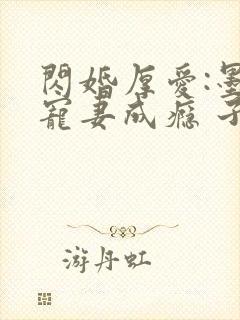 閃婚厚愛:墨
寵妻成瘾 子
游丹虹